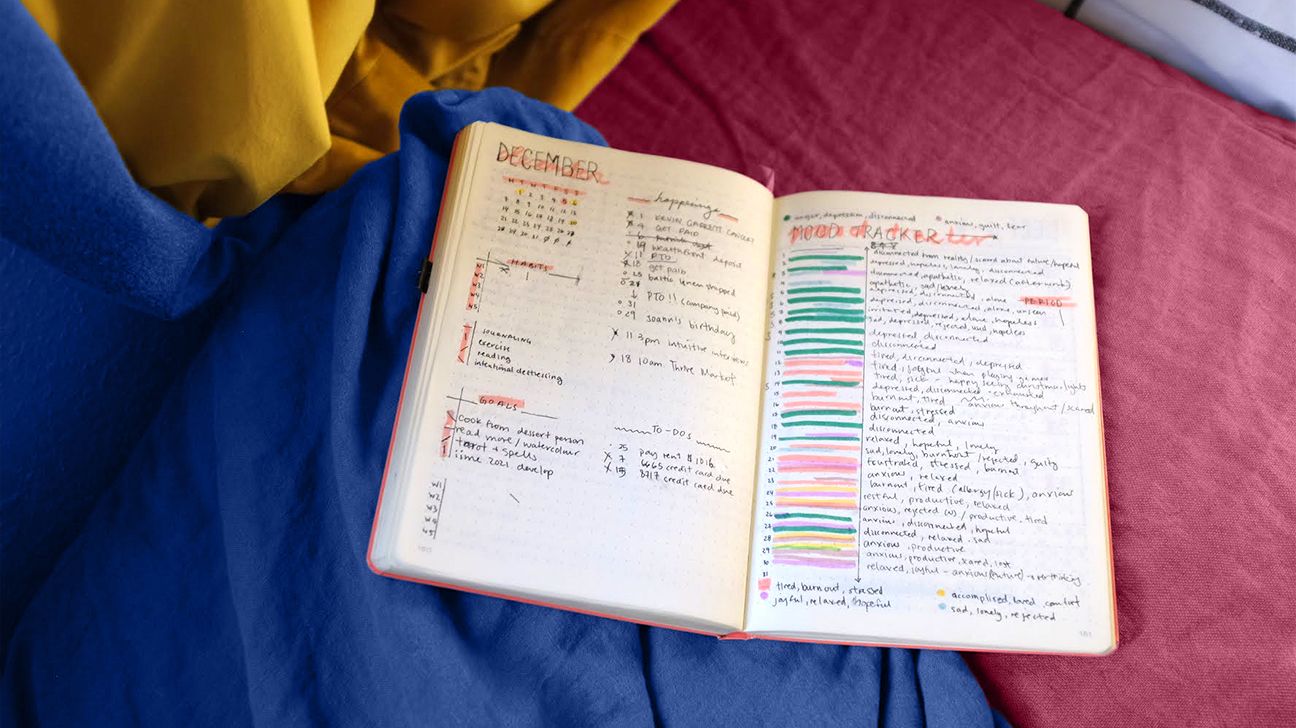 DECEMBER
M T W T F S S
1 2 3 4 5 6
7 8 9 10 11 12 13
14 15 16 17 18 19 20
21 22 23 24 25 26 27
28 29 30 31
HABITS
W1
W2
W3
W4
W5
JOURNALING
exercise
reading
intentional destressing
GOALS
cook from dessert person
read more / watercolour
tarot + spells
2021 develop
W1
W2
W3
W4
W5
happenings
x 1 KEVIN GARRETT
x 4 GET PAID
wealthfront deposit
PTO
x 18 get paid
o 25 basic linen shipped
o 24
↓ PTO!! (company paid)
o 31
o 29 Joann's birthday
x 11 3pm intuitive
18 10am Thrive Market
TO-DOS
25 pay rent $1016
x 7 6665 credit card due
x 15 8717 credit card due
anger, depression, disconnected
anxiety, guilt, fear
MOOD TRACKER
disconnected from reality / scared about future / hopeful
depressed, lonely, disconnected
disconnected, apathetic, relaxed (after work)
apathetic, sad / lonely
depressed, disconnected, alone
PERIOD
depressed, disconnected, alone, unseen
irritated, depressed, alone, hopeless
sad, depressed, rejected, hopeless
depressed, disconnected
disconnected
tired, disconnected, depressed
tired, joyful when playing games
tired, sick - happy seeing christmas lights
depressed, disconnected, exhausted
burnout, tired anxious throughout / scared
burnout, stressed
disconnected, anxious
disconnected
relaxed, hopeful, lonely
sad, lonely, burntout / rejected, guilty
frustrated, stressed, burnout
anxious, relaxed
burnout, tired (allergy/sick), anxious
restful, productive, relaxed
anxious, rejected / productive, tired
anxious, disconnected, hopeful
disconnected, relaxed, sad
anxious, productive
anxious, productive, scared, lost
relaxed, joyful - anxious (future) → overthinking
tired, burnout, stressed
joyful, relaxed, hopeful
accomplised, loved, comfort
sad, lonely, rejected